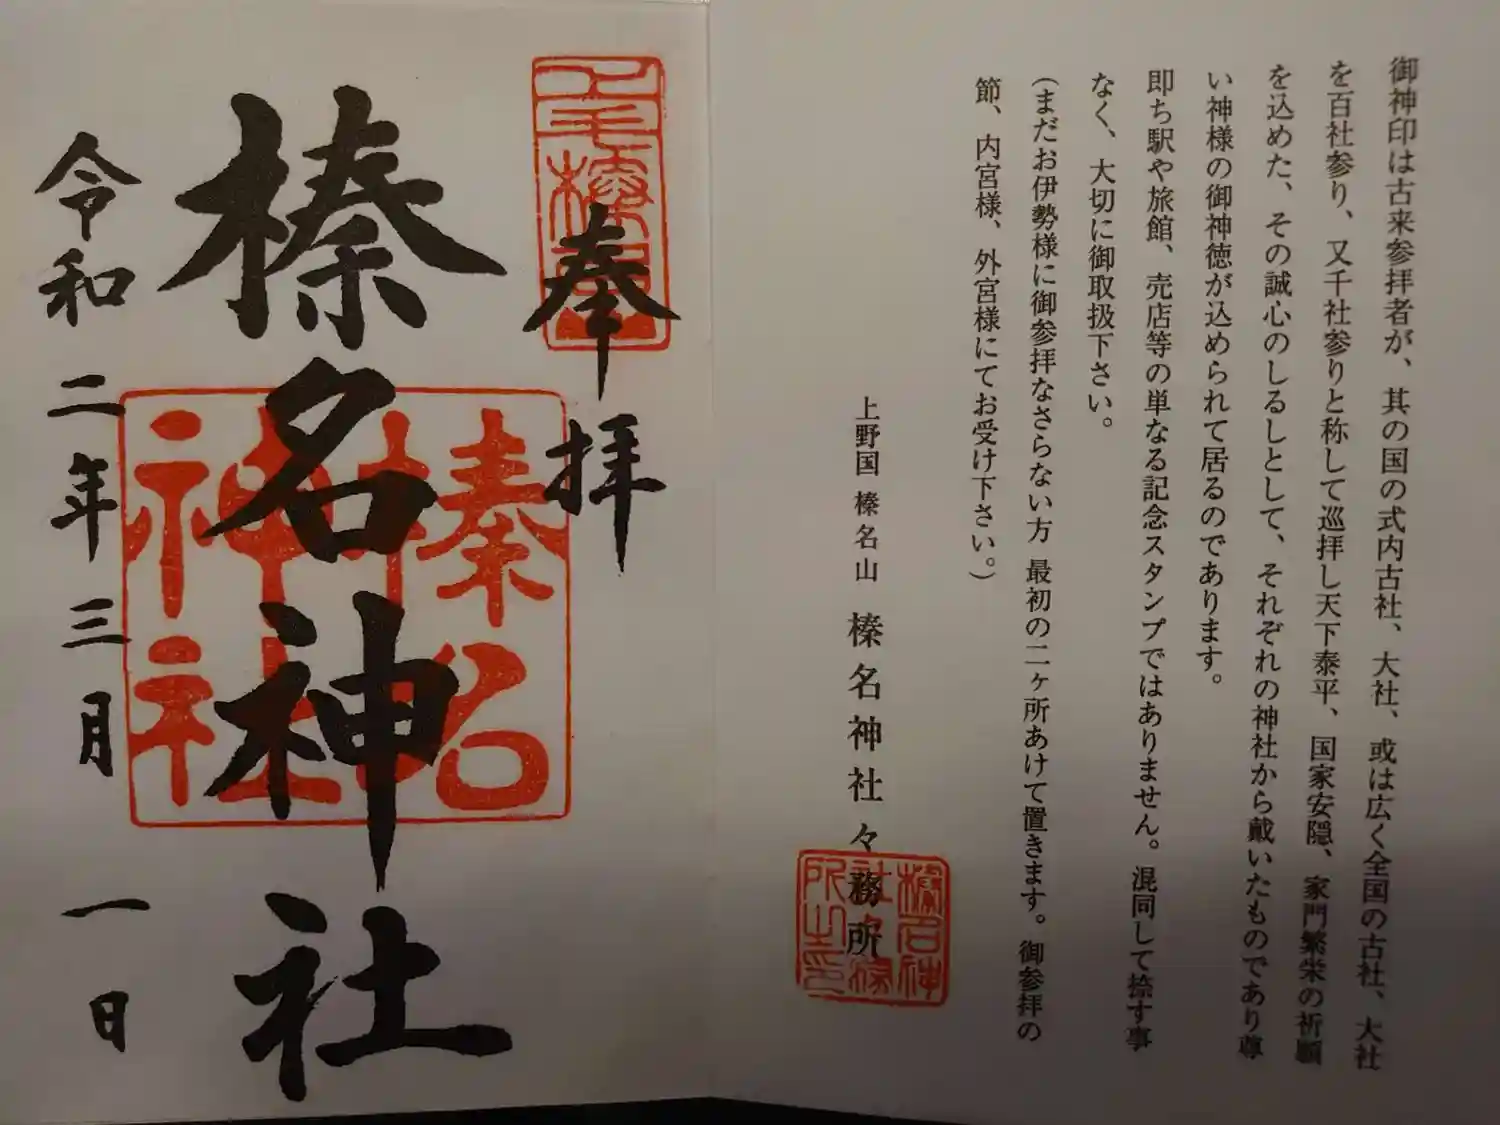 御神印は古来参拝者が、其の国の式内古社、大社、或は広く全国の古社、大社
を百社参り、又千社参りと称して巡拝し天下泰平、国家安隠、家門繁栄の祈願
を込めた、その誠心のしるしとして、それぞれの神社から戴いたものであり尊
い神様の御神徳が込められて居るのであります。
即ち駅や旅館、売店等の単なる記念スタンプではありません。混同して捨す事
なく、大切に御取扱下さい。
(まだお伊勢様に御参拝なさらない方 最初の二ヶ所あけて置きます。御参拝の
節、内宮様、外宮様にてお受け下さい。)
上野国 榛名山 榛名神社々務所
榛名神社々務所之印
奉拝
榛名神社
榛名神社
令和二年三月一日